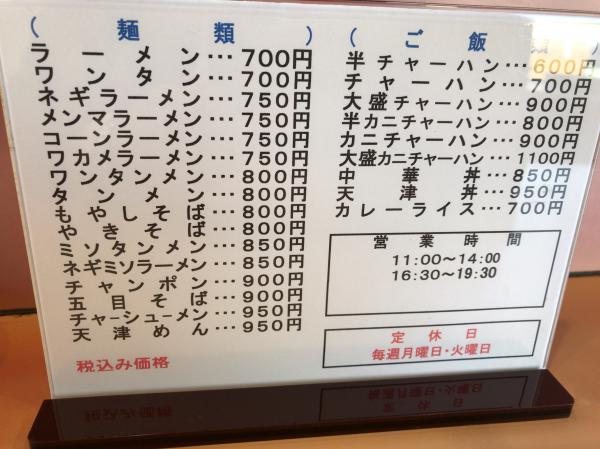 （麺類）
ラーメン･･･700円
ワンタン･･･700円
ネギラーメン･･･750円
メンマラーメン･･･750円
コーンラーメン･･･750円
ワカメラーメン･･･750円
ワンタンメン･･･800円
タンメン･･･800円
もやしそば･･･800円
やきそば･･･800円
ミソタンメン･･･850円
ネギミソラーメン･･･850円
チャンポン･･･900円
五目そば･･･900円
チャーシューメン･･･950円
天津めん･･･950円
税込み価格
（ご飯類）
半チャーハン･･･600円
チャーハン･･･700円
大盛チャーハン･･･900円
半カニチャーハン･･･800円
カニチャーハン･･･900円
大盛カニチャーハン･･･1100円
中華丼･･･850円
天津丼･･･950円
カレーライス･･･700円
営業時間
11:00～14:00
16:30～19:30
定休日
毎週月曜日・火曜日